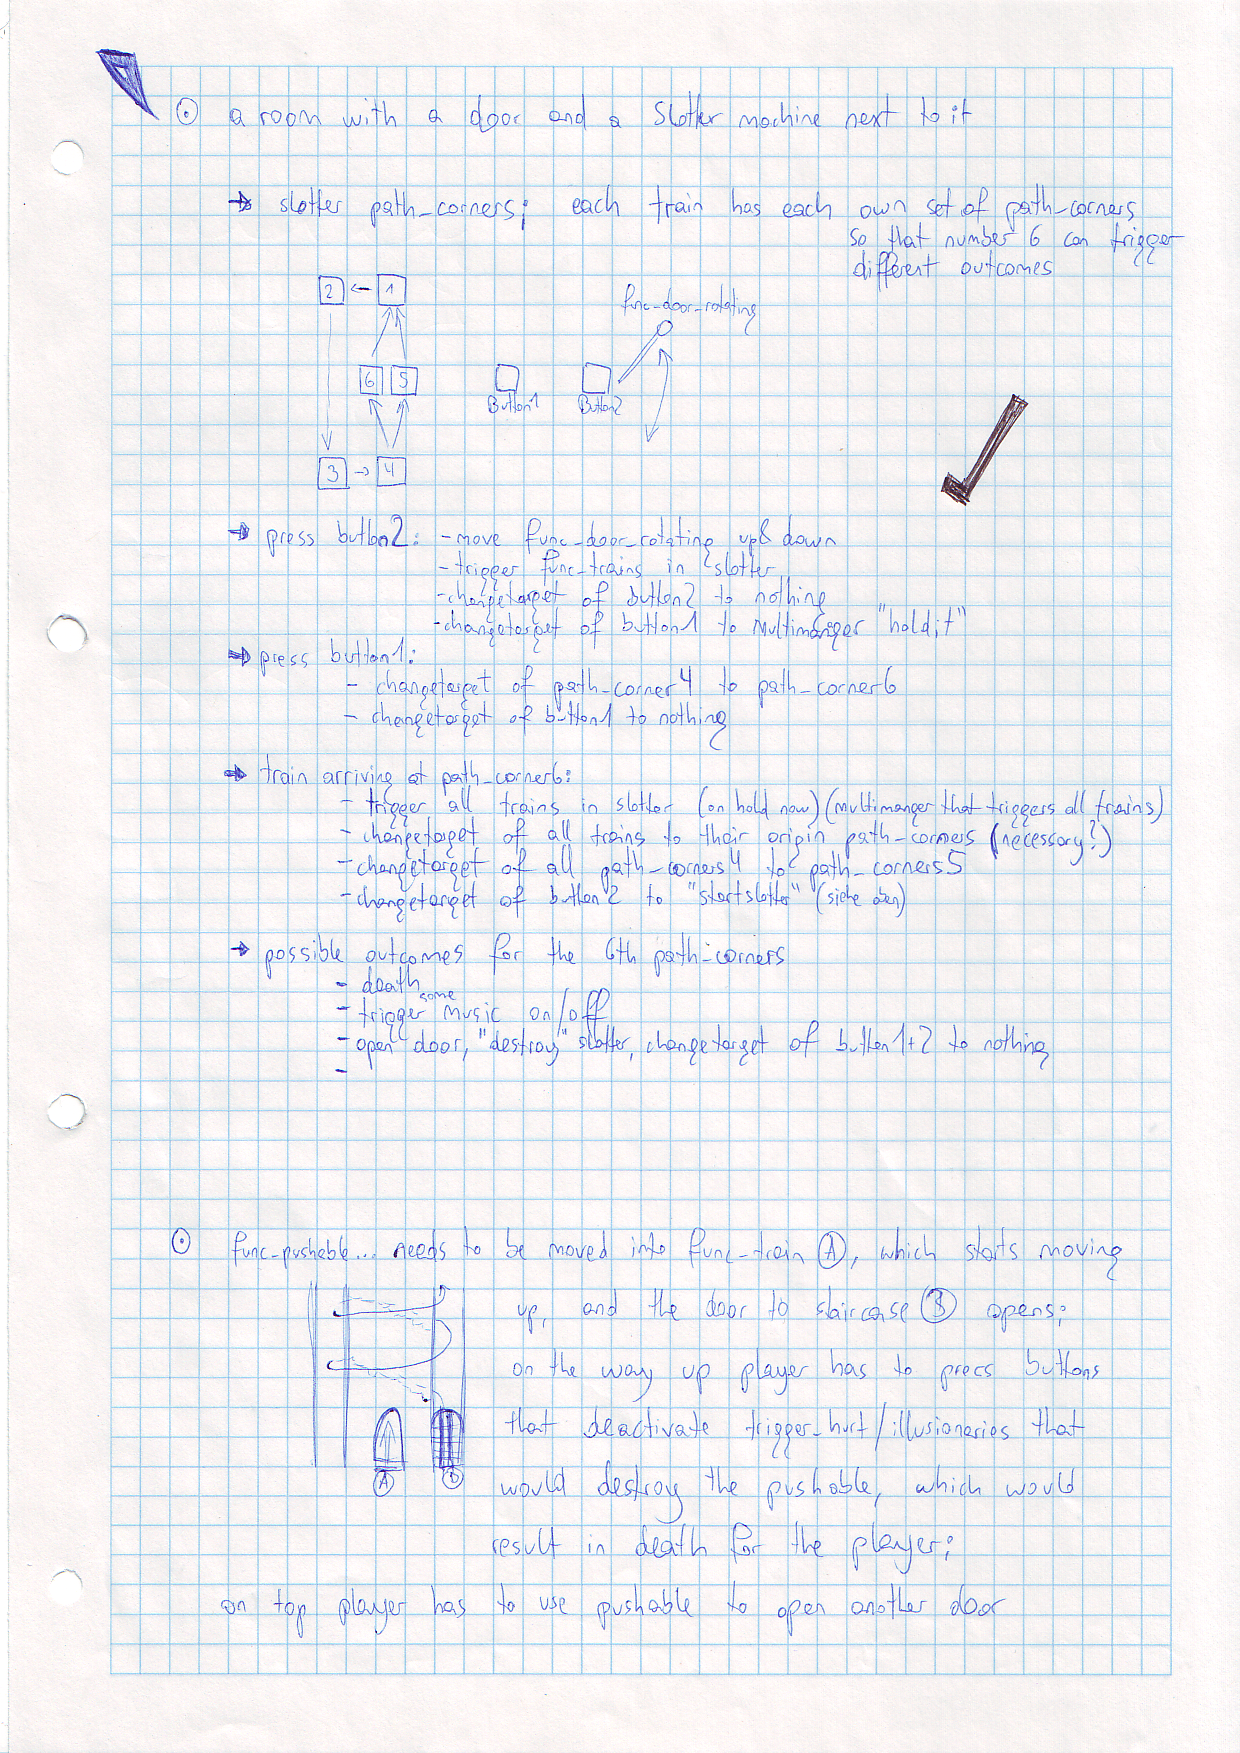 a room with a door and a Slotter machine next to it
→ slotter path_corners; each train has each own set of path_corners
so that number 6 can trigger
different outcomes
2 ← 1
func_door_rotating
6 5
Button1 Button2
3 → 4
→ press button2: - move func_door_rotating up & down
- trigger func_trains in slotter
- changetarget of button2 to nothing
- changetarget of button1 to Multimanger "holdit"
→ press button1:
- changetarget of path_corner4 to path_corner6
- changetarget of button1 to nothing
→ train arriving at path_corner6:
- trigger all trains in slotter (on hold now) (multimanger that triggers all trains)
- changetarget of all trains to their origin path_corners (necessary?)
- changetarget of all path_corners4 to path_corners5
- changetarget of button2 to "startslotter" (siehe oben)
→ possible outcomes for the 6th path_corners
- death
- trigger some music on/off
- open door, "destroy" slotter, changetarget of button1+2 to nothing
-
func_pushable... needs to be moved into func_train A, which starts moving
up, and the door to staircase B opens;
on the way up player has to press buttons
that deactivate trigger_hurt/illusionaries that
A B
would destroy the pushable, which would
result in death for the player;
on top player has to use pushable to open another door